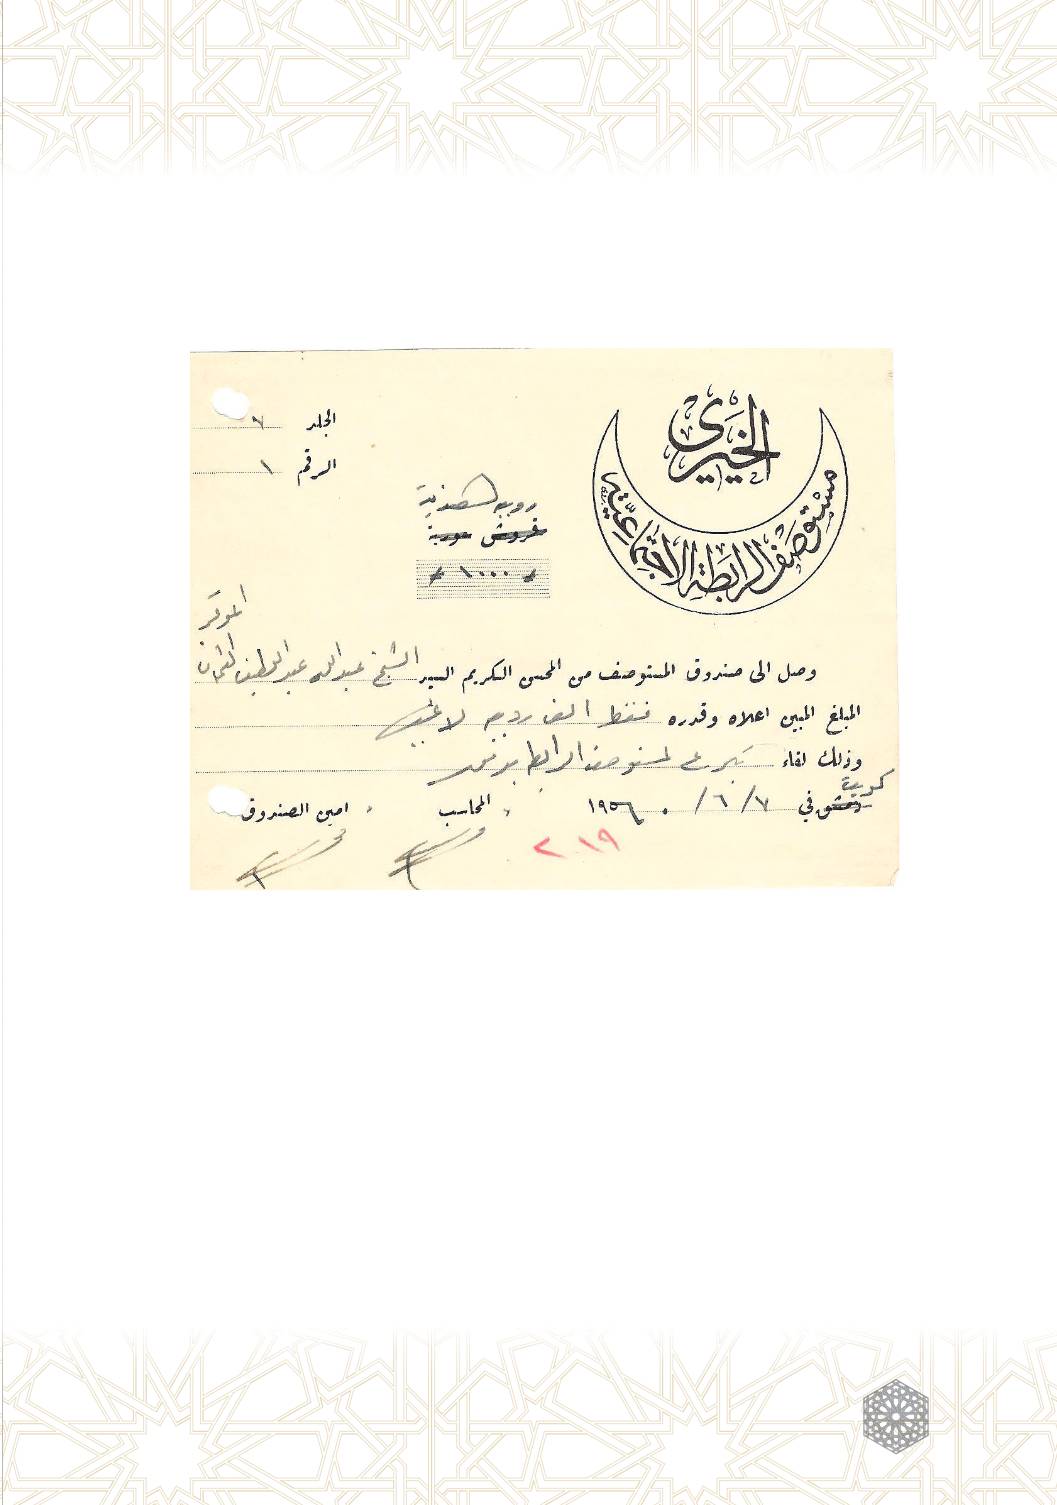 الخيري
مستوصف الرابطة الاجتماعية
الجلد ٧
الرقم ١
روبيه هندية
غروش سورية
١٠٠٠
الموقر
وصل الى صندوق المستوصف من المحسن الكريم السيد الشيخ عبدالله عبداللطيف العثمان
المبلغ المبين اعلاه وقدره فقط الف روبيه لا غير
وذلك لقاء تبرع لمستوصف الرابطة بدمشق
كويت
دمشق في ٧/٦/١٩٥٦ المحاسب امين الصندوق
٢٠١٩